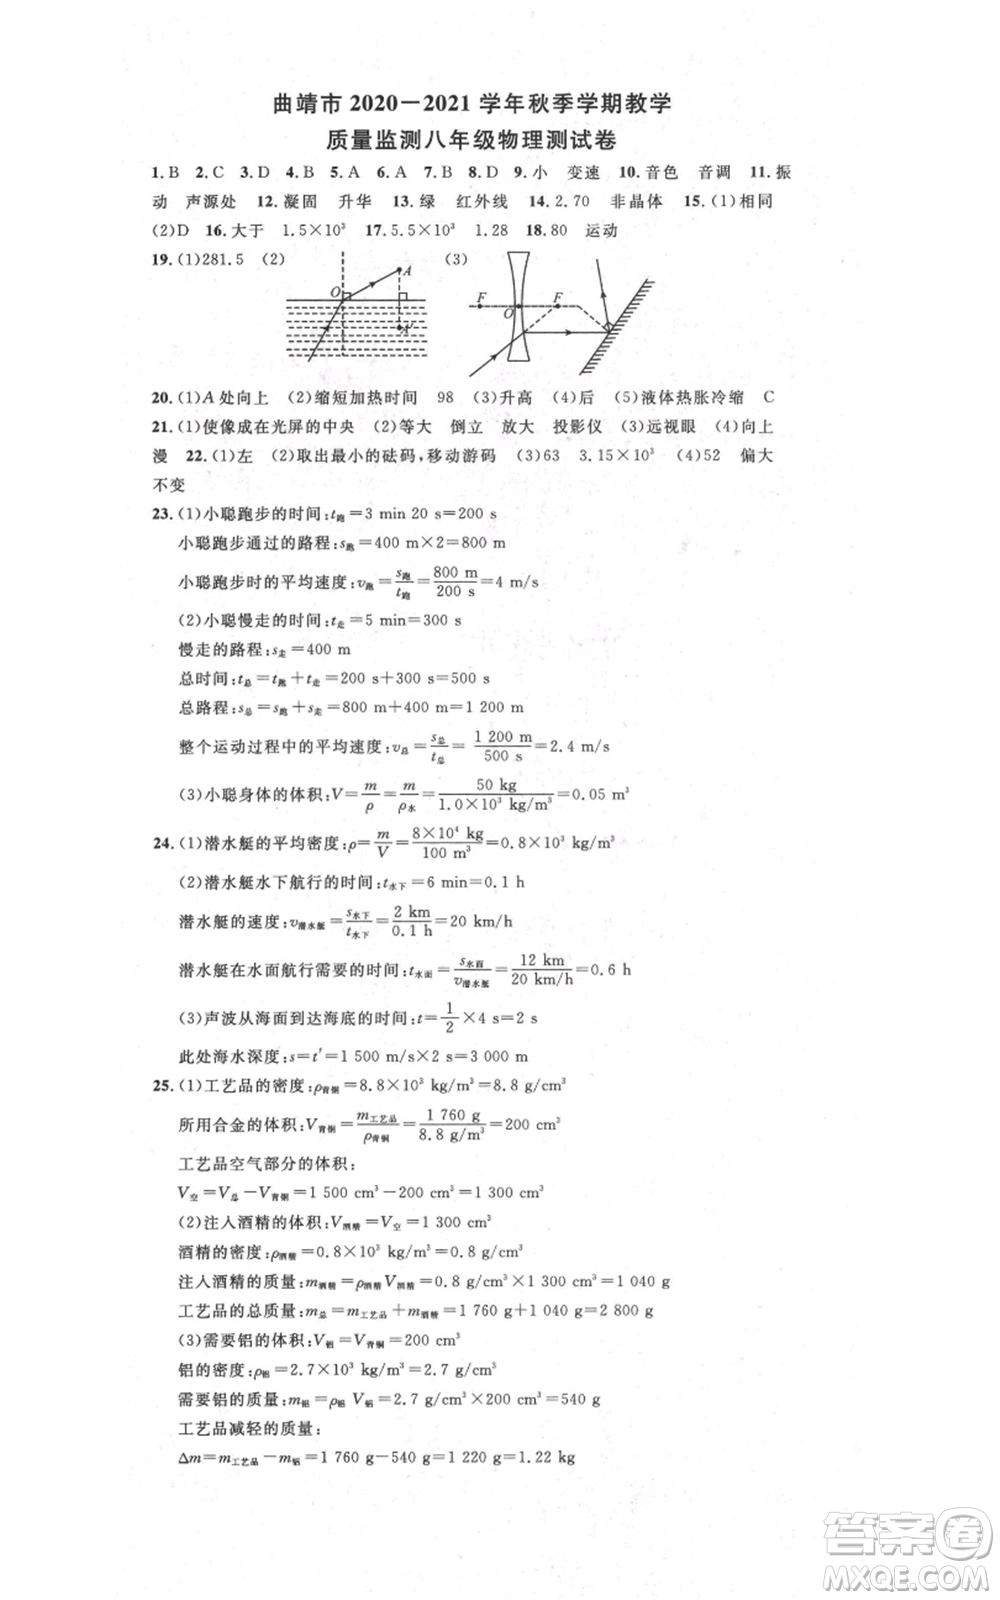 曲靖市 2020－2021 学年秋季学期教学
质量监测八年级物理测试卷
1.B 2.C 3.D 4.B 5.A 6.A 7.B 8.D 9.小 变速 10.音色 音调 11.振
动 声源处 12.凝固 升华 13.绿 红外线 14.2.70 非晶体 15.(1)相同
(2)D 16.大于 1.5×10³ 17.5.5×10³ 1.28 18.80 运动
19.(1)281.5 (2) (3)
O A A′
F O F
20.(1)A处向上 (2)缩短加热时间 98 (3)升高 (4)后 (5)液体热胀冷缩 C
21.(1)使像成在光屏的中央 (2)等大 倒立 放大 投影仪 (3)远视眼 (4)向上
漫 22.(1)左 (2)取出最小的砝码,移动游码 (3)63 3.15×10³ (4)52 偏大
不变
23.(1)小聪跑步的时间:t跑=3 min 20 s=200 s
小聪跑步通过的路程:s跑=400 m×2=800 m
小聪跑步时的平均速度:v跑=s跑/t跑=800 m/200 s=4 m/s
(2)小聪慢走的时间:t走=5 min=300 s
慢走的路程:s走=400 m
总时间:t总=t跑+t走=200 s+300 s=500 s
总路程:s总=s跑+s走=800 m+400 m=1 200 m
整个运动过程中的平均速度:v总=s总/t总=1 200 m/500 s=2.4 m/s
(3)小聪身体的体积:V=m/ρ=m/ρ水=50 kg/1.0×10³ kg/m³=0.05 m³
24.(1)潜水艇的平均密度:ρ=m/V=8×10⁴ kg/100 m³=0.8×10³ kg/m³
(2)潜水艇水下航行的时间:t水下=6 min=0.1 h
潜水艇的速度:v潜水艇=s水下/t水下=2 km/0.1 h=20 km/h
潜水艇在水面航行需要的时间:t水面=s水面/v潜水艇=12 km/20 km/h=0.6 h
(3)声波从海面到达海底的时间:t=1/2×4 s=2 s
此处海水深度:s=t′=1 500 m/s×2 s=3 000 m
25.(1)工艺品的密度:ρ青铜=8.8×10³ kg/m³=8.8 g/m³
所用合金的体积:V青铜=m工艺品/ρ青铜=1 760 g/8.8 g/m³=200 cm³
工艺品空气部分的体积:
V空=V总-V青铜=1 500 cm³-200 cm³=1 300 cm³
(2)注入酒精的体积:V酒精=V空=1 300 cm³
酒精的密度:ρ酒精=0.8×10³ kg/m³=0.8 g/cm³
注入酒精的质量:m酒精=ρ酒精V酒精=0.8 g/cm³×1 300 cm³=1 040 g
工艺品的总质量:m总=m工艺品+m酒精=1 760 g+1 040 g=2 800 g
(3)需要铝的体积:V铝=V青铜=200 cm³
铝的密度:ρ铝=2.7×10³ kg/m³=2.7 g/cm³
需要铝的质量:m铝=ρ铝 V铝=2.7 g/cm³×200 cm³=540 g
工艺品减轻的质量:
Δm=m工艺品-m铝=1 760 g-540 g=1 220 g=1.22 kg
答案卷
MXQE.COM